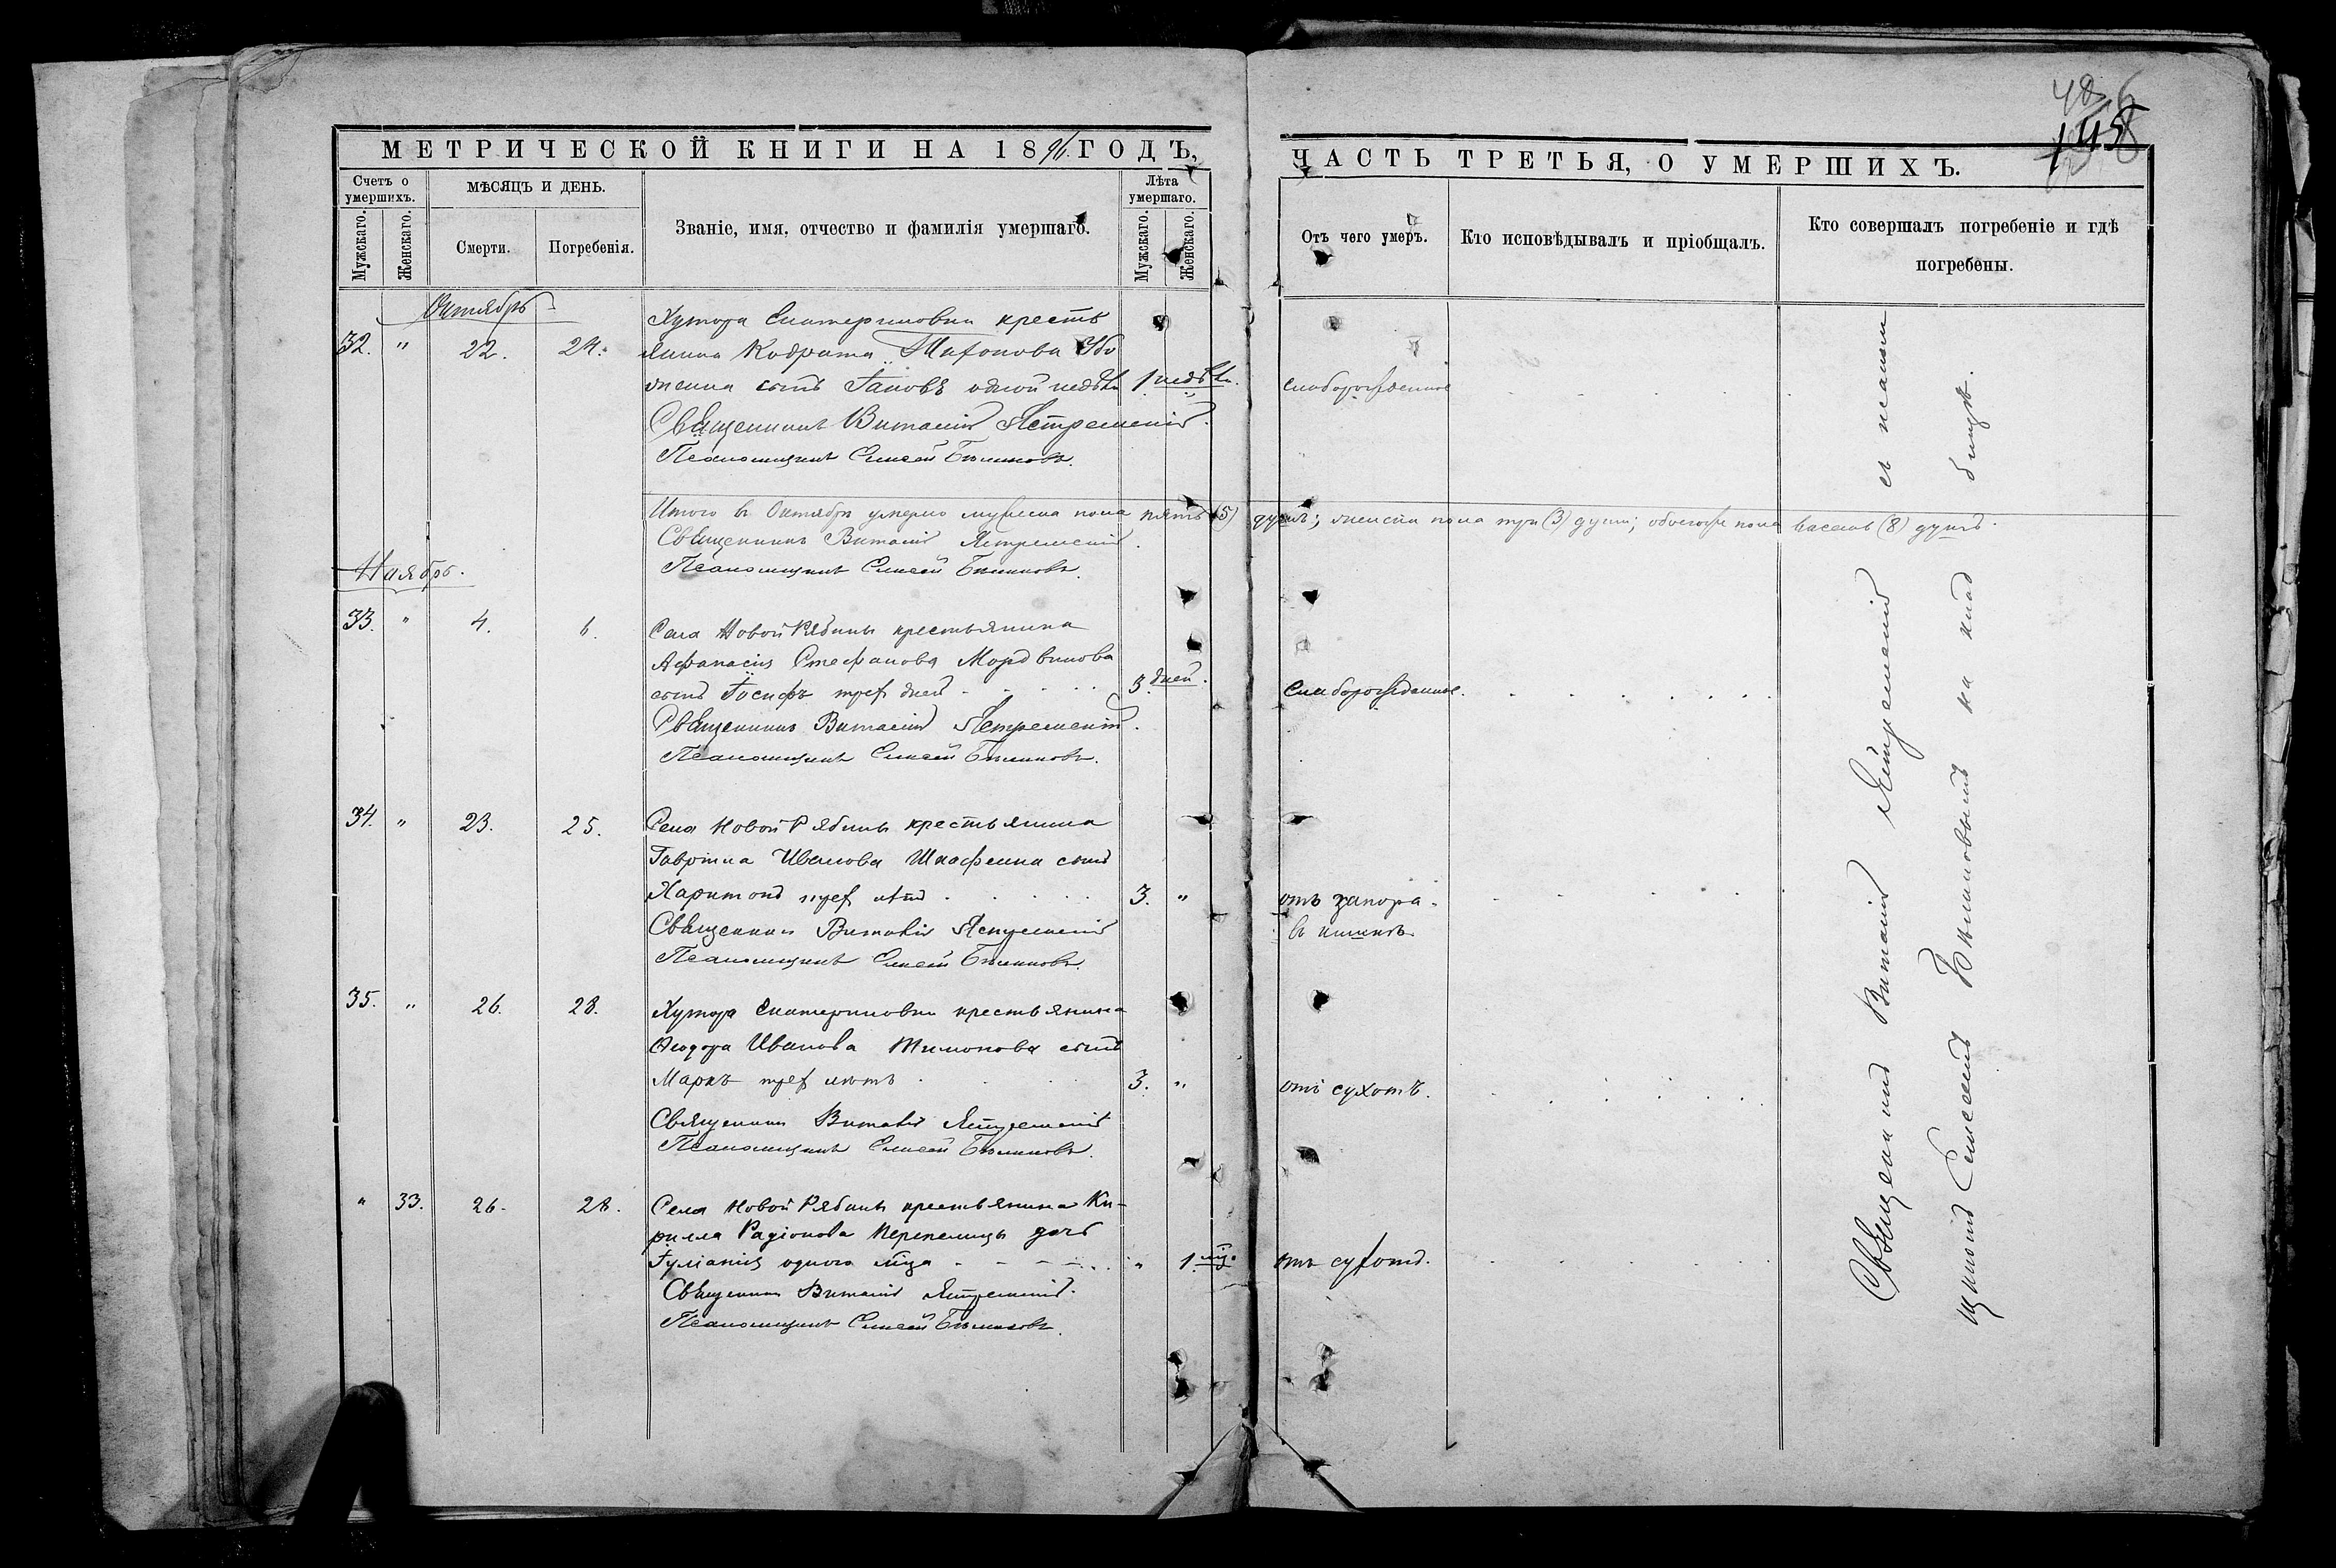 МЕТРИЧЕСКОЙ КНИГИ НА 1896 ГОДЪ,
Счетъ о умершихъ.
Мужскаго.
Женскаго.
МѢСЯЦЪ И ДЕНЬ.
Смерти.
Погребенія.
Званіе, имя, отчество и фамилія умершаго.
Лѣта умершаго.
Мужскаго.
Женскаго.
Октябрь
32. " 22. 24.
Хутора Екатериновки кресть
янина Кодрата
сынъ Іаковъ одной недѣли 1 недѣли.
Священникъ Виталій Ястремскій.
Псаломщикъ Елисей Бѣликовъ.
Итого въ Октябрѣ умерло мужеска пола пять (5) душъ; женска пола три (3) души; обоего пола восемь (8) душъ.
Священникъ Виталій Ястремскій.
Псаломщикъ Елисей Бѣликовъ.
Ноябрь.
33. " 4. 6.
Села Новой Рябины крестьянина
Афанасія Стефанова Мордвинова
сынъ Іосифъ трех дней 3. дней.
Священникъ Виталій Ястремскій.
Псаломщикъ Елисей Бѣликовъ.
34. " 23. 25.
Села Новой Рябины крестьянина
Гавріила Иванова сынъ
Харитонъ трех лѣтъ 3. "
Священникъ Виталій Ястремскій
Псаломщикъ Елисей Бѣликовъ.
35. " 26. 28.
Хутора Екатериновки крестьянина
Ѳеодора Иванова Тимонова сынъ
Маркъ трех лѣтъ 3. "
Священникъ Виталій Ястремскій
Псаломщикъ Елисей Бѣликовъ.
" 33. 26. 28.
Села Новой Рябины крестьянина Ки-
рилла Радіонова Перепелицы дочь
Іуліанія одного м-ца " 1 м-ц.
Священникъ Виталій Ястремскій.
Псаломщикъ Елисей Бѣликовъ.
145
ЧАСТЬ ТРЕТЬЯ, О УМЕРШИХЪ.
Отъ чего умеръ.
Кто исповѣдывалъ и пріобщалъ.
Кто совершалъ погребеніе и гдѣ погребены.
слаборожденіе
Слаборожденіе.
отъ запора
въ кишкѣ.
отъ сухотъ.
отъ сухотъ.
Священникъ Виталій Ястремскій съ псалом
щикомъ Елисеемъ Бѣликовымъ на клад
бищѣ.